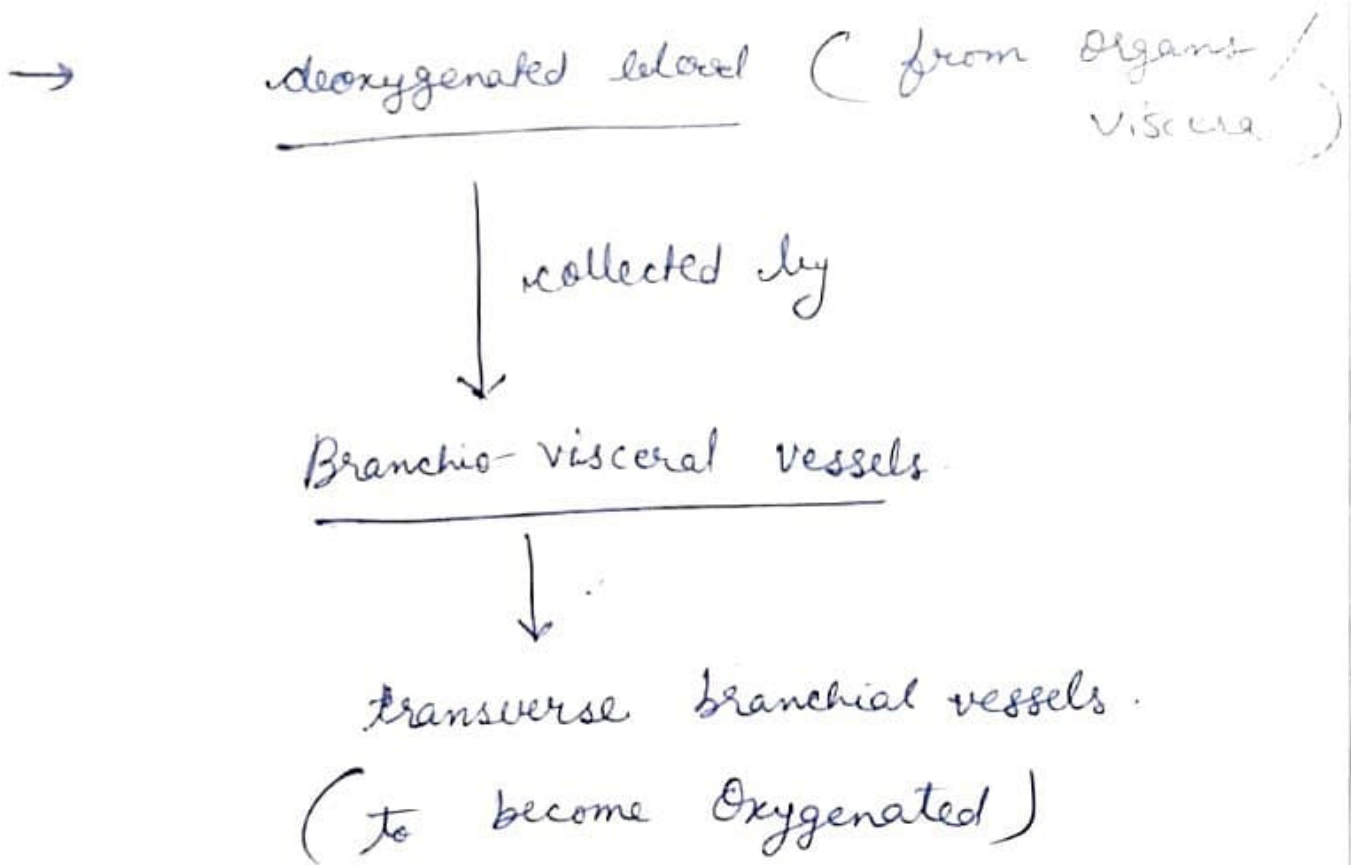 → deoxygenated blood (from organs/
viscera)
collected by
Branchio-visceral vessels
transverse branchial vessels.
(to become Oxygenated)